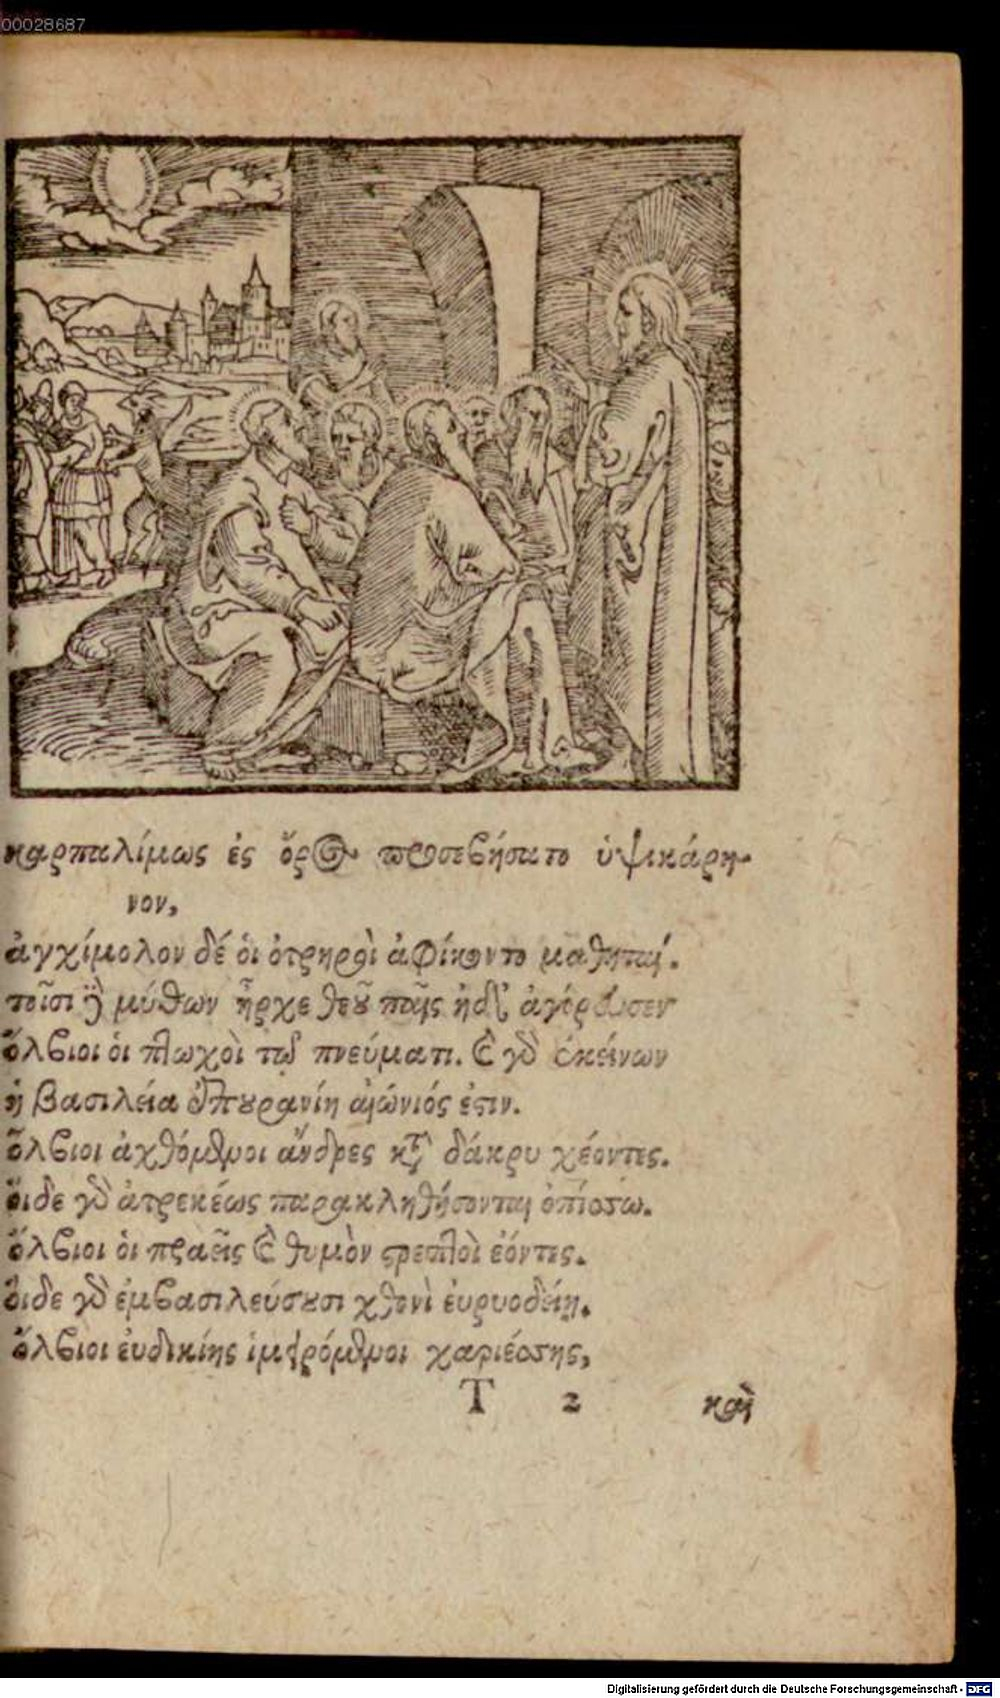 00028687
καρπαλίμως ἐς ὄρος προσεβήσατο ὑψικάρη-
νον,
ἀγχίμολον δέ οἱ ὀτρηροὶ ἀφίκοντο μαθηταί.
τοῖσι δὲ μύθων ἦρχε θεοῦ παῖς ἠδ' ἀγόρευσεν
ὄλβιοι οἱ πτωχοὶ τῷ πνεύματι. καὶ γὰρ ἐκείνων
ἡ βασιλεία ἐπουρανίη αἰώνιός ἐστιν.
ὄλβιοι ἀχθόμενοι ἄνδρες κατὰ δάκρυ χέοντες.
οἵδε γὰρ ἀτρεκέως παρακληθήσονται ὀπίσσω.
ὄλβιοι οἱ πραεῖς καὶ θυμὸν στρεπτοὶ ἐόντες.
οἵδε γὰρ ἐμβασιλεύσουσι χθονὶ εὐρυοδείῃ.
ὄλβιοι εὐδικίης ἱμειρόμενοι χαριέσσης,
T 2 καὶ
Digitalisierung gefördert durch die Deutsche Forschungsgemeinschaft - DFG